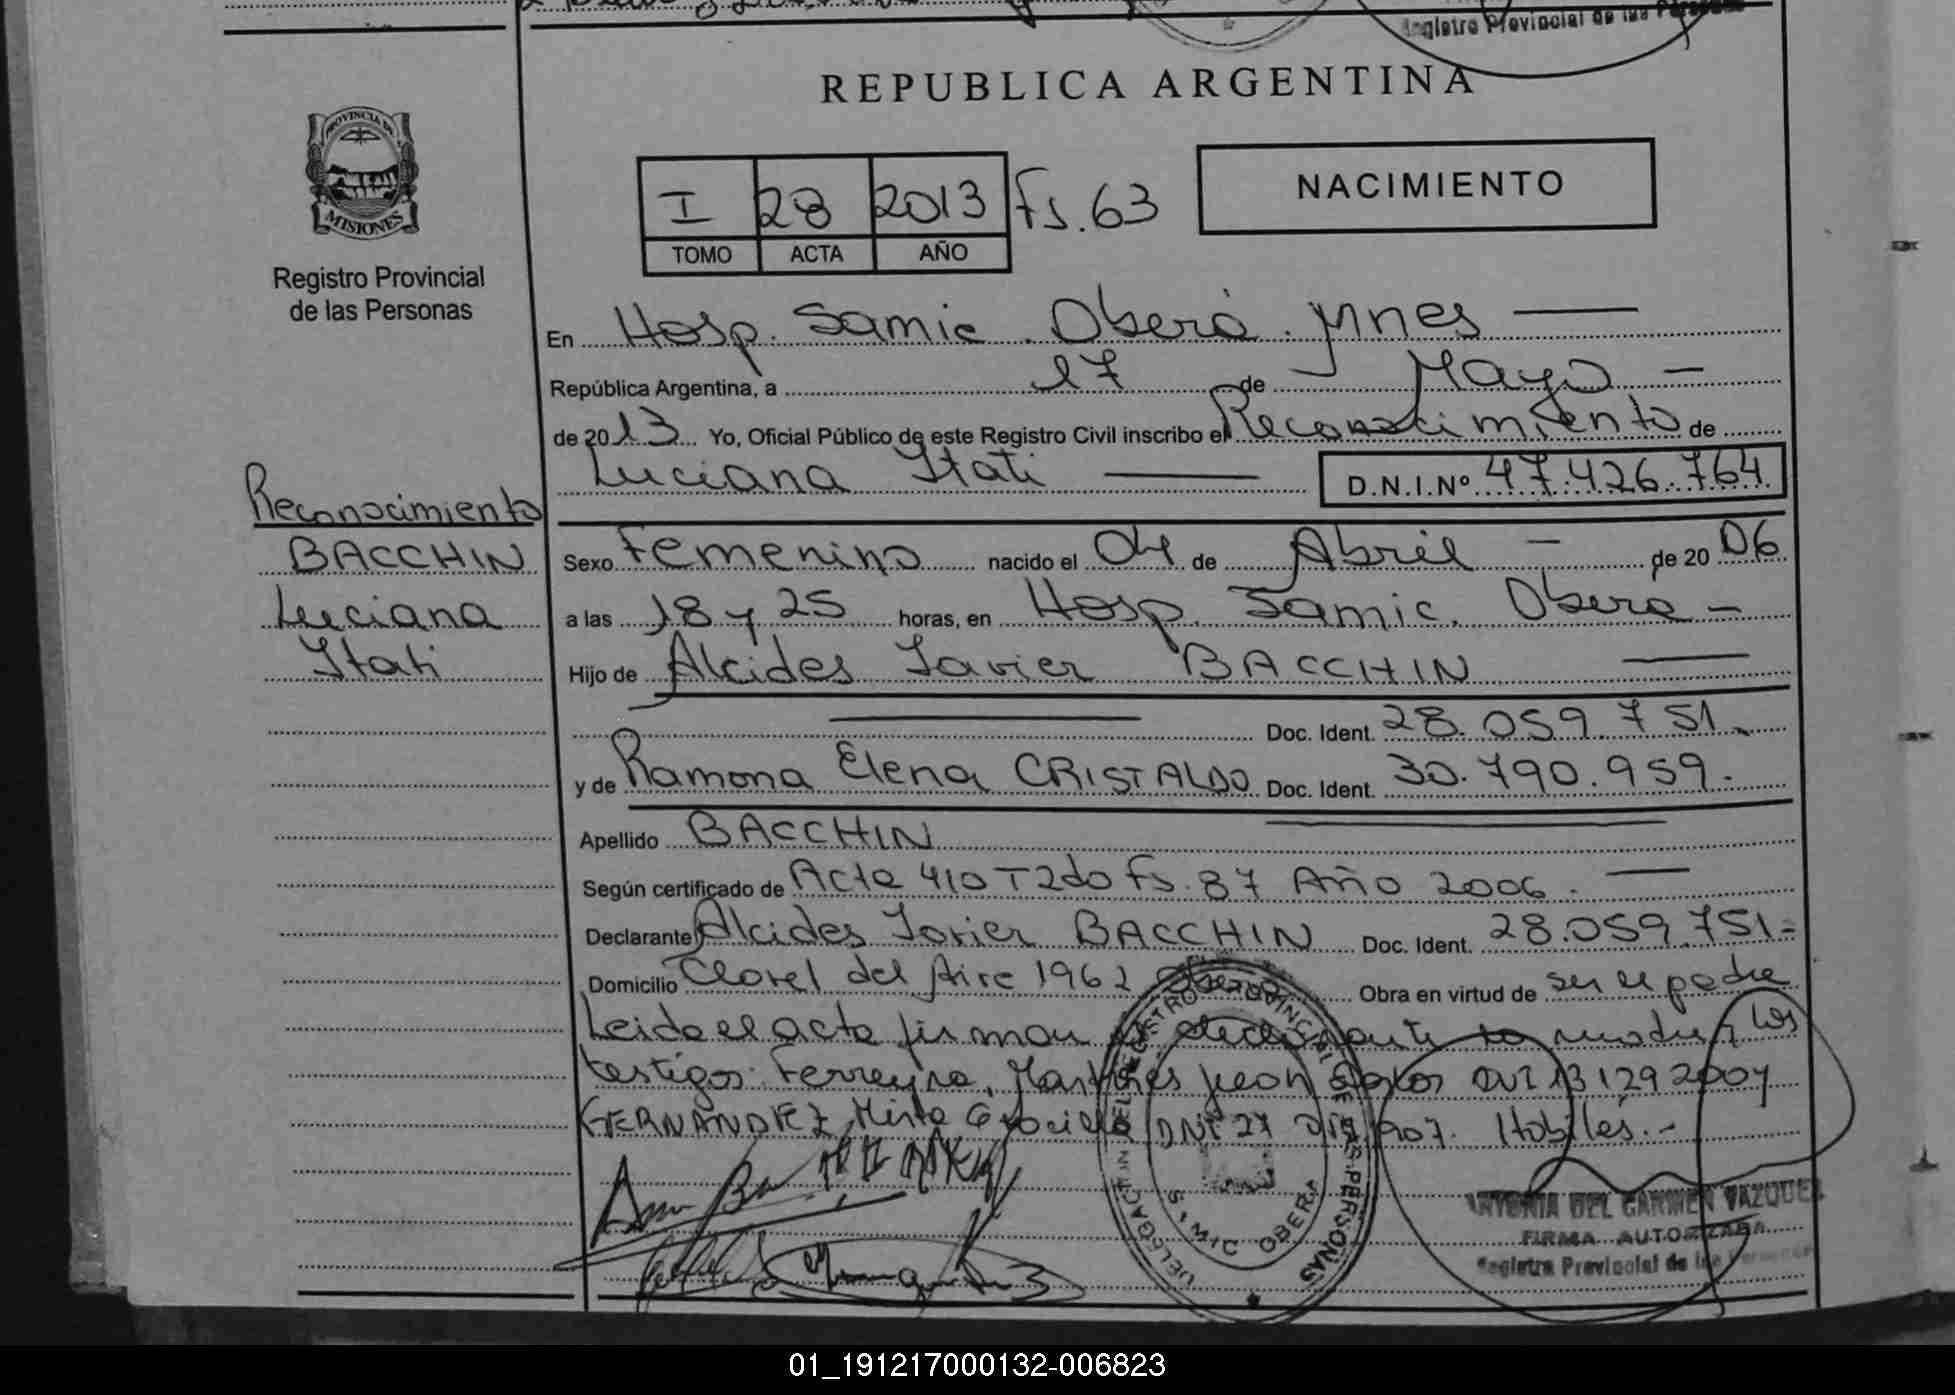 Registro Provincial de las Personas
REPUBLICA ARGENTINA
PROVINCIA DE
MISIONES
Registro Provincial
de las Personas
I 28 2013 Fs. 63
TOMO ACTA AÑO
NACIMIENTO
En Hosp. Samic. Oberá. Mnes
República Argentina, a 17 de Mayo
de 2013 Yo, Oficial Público de este Registro Civil inscribo el Reconocimiento de
Luciana Itati D.N.I.Nº 47.426.764
Reconocimiento
BACCHIN
Luciana
Itati
Sexo Femenino nacido el 04 de Abril de 2006
a las 18 y 25 horas, en Hosp. Samic. Obera
Hijo de Alcides Javier BACCHIN
Doc. Ident. 28.059.751
y de Ramona Elena CRISTALDO Doc. Ident. 30.790.959.
Apellido BACCHIN
Según certificado de Acta 410 T2do Fs. 87 Año 2006.
Declarante Alcides Javier BACCHIN Doc. Ident. 28.059.751
Domicilio Clavel del Aire 1962 Obera Obra en virtud de ser el padre
Leida el acta firman el declarante la madre y los
testigos: Ferreyra, Carlos DNI 13129200 y
Mirta Graciela DNI 27 907. Habiles.-
DELEGACION DEL REGISTRO PROVINCIAL DE LAS PERSONAS
SAMIC OBERA
ANTONIA DEL CARMEN VAZQUEZ
FIRMA AUTORIZADA
Registro Provincial de las Personas
01_191217000132-006823